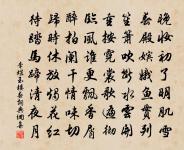 晚妝初了明肌雪
春殿嬪娥魚貫列
笙簫吹斷水雲間
重按霓裳歌遍徹
臨風誰更飄香屑
醉拍闌干情味切
歸時休放燭花紅
待踏馬蹄清夜月
李煜玉樓春詞